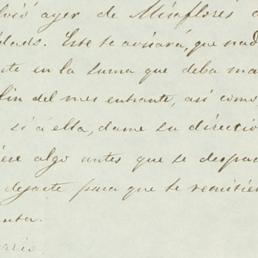 lvió ayer de Miraflores
dado. Este te avisará, que nad
te en la suma que deba ma
fin del mes entrante, así como
si á ella, dame su directio
iere algo antes que se despa
dejaste para que te remitier
nta.